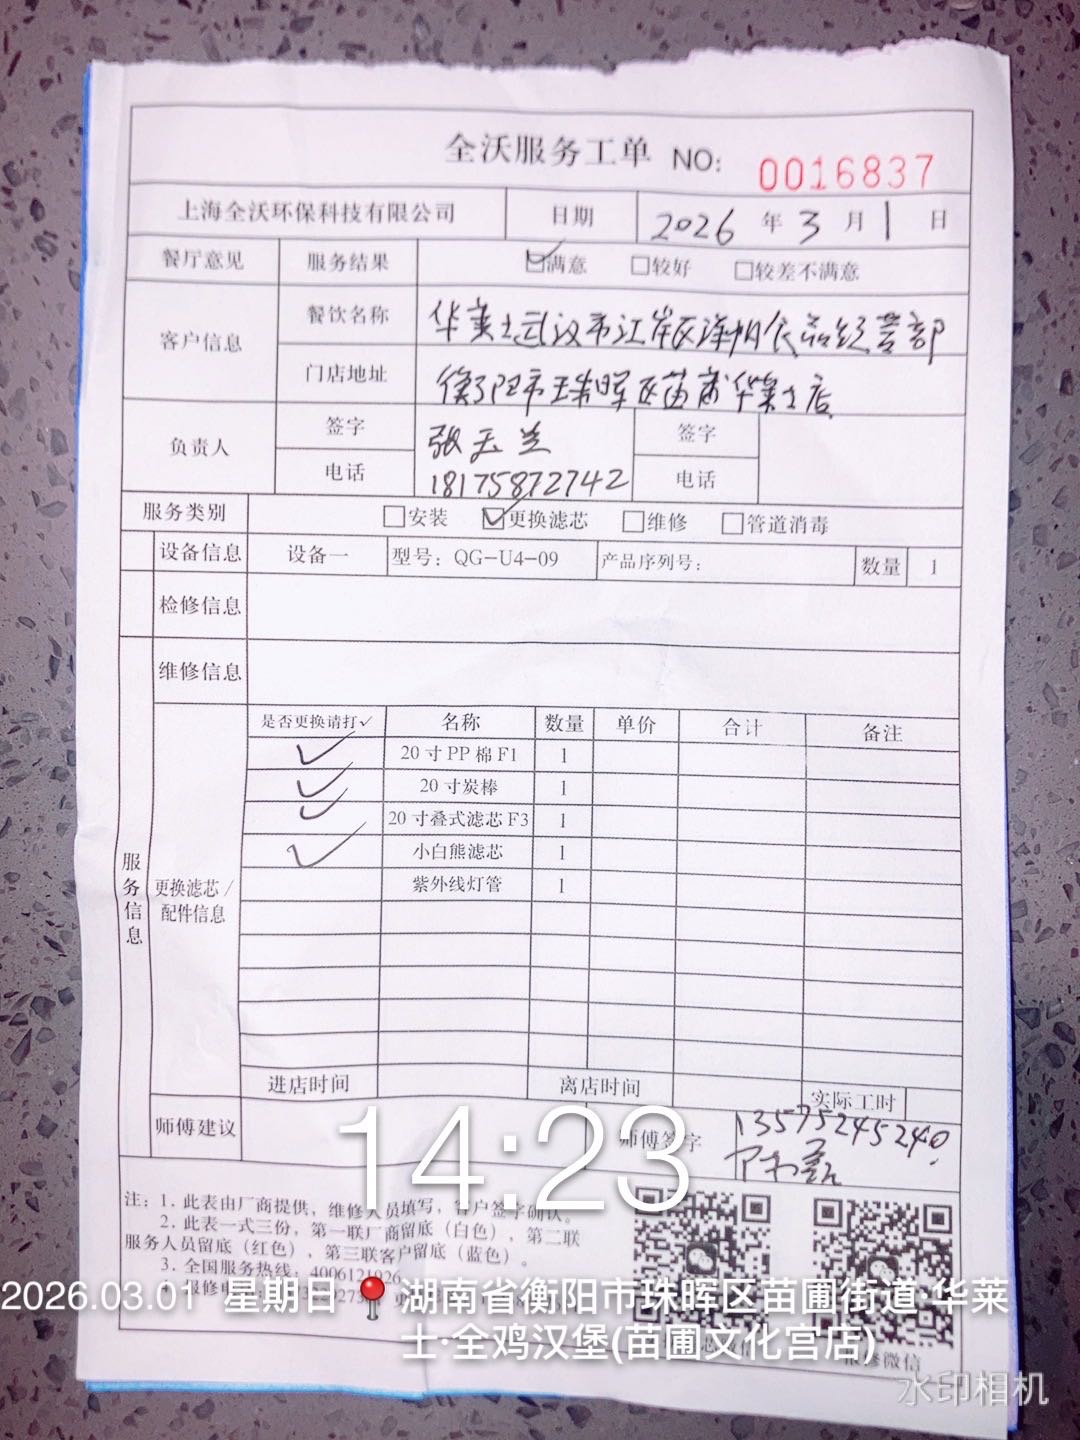 全沃服务工单 NO: 0016837
上海全沃环保科技有限公司 日期 2026 年 3 月 1 日
餐厅意见 服务结果 ☑满意 □较好 □较差不满意
客户信息 餐饮名称 华莱士武汉市江岸区泽帆食品经营部
门店地址 衡阳市珠晖区苗圃华莱士店
负责人 签字 张玉兰 签字
电话 18175872742 电话
服务类别 □安装 ☑更换滤芯 □维修 □管道消毒
设备信息 设备一 型号：QG-U4-09 产品序列号： 数量 1
检修信息
维修信息
服务信息
更换滤芯/配件信息
是否更换请打✓ 名称 数量 单价 合计 备注
✓ 20寸PP棉F1 1
✓ 20寸炭棒 1
✓ 20寸叠式滤芯F3 1
✓ 小白熊滤芯 1
紫外线灯管 1
进店时间 离店时间 实际工时
师傅建议 师傅签字 13575245240
14:23
注：1. 此表由厂商提供，维修人员填写，客户签字确认。
2. 此表一式三份，第一联厂商留底（白色），第二联
服务人员留底（红色），第三联客户留底（蓝色）。
3. 全国服务热线：4006121026
2026.03.01 星期日 湖南省衡阳市珠晖区苗圃街道·华莱
士·全鸡汉堡(苗圃文化宫店)
维修微信
水印相机